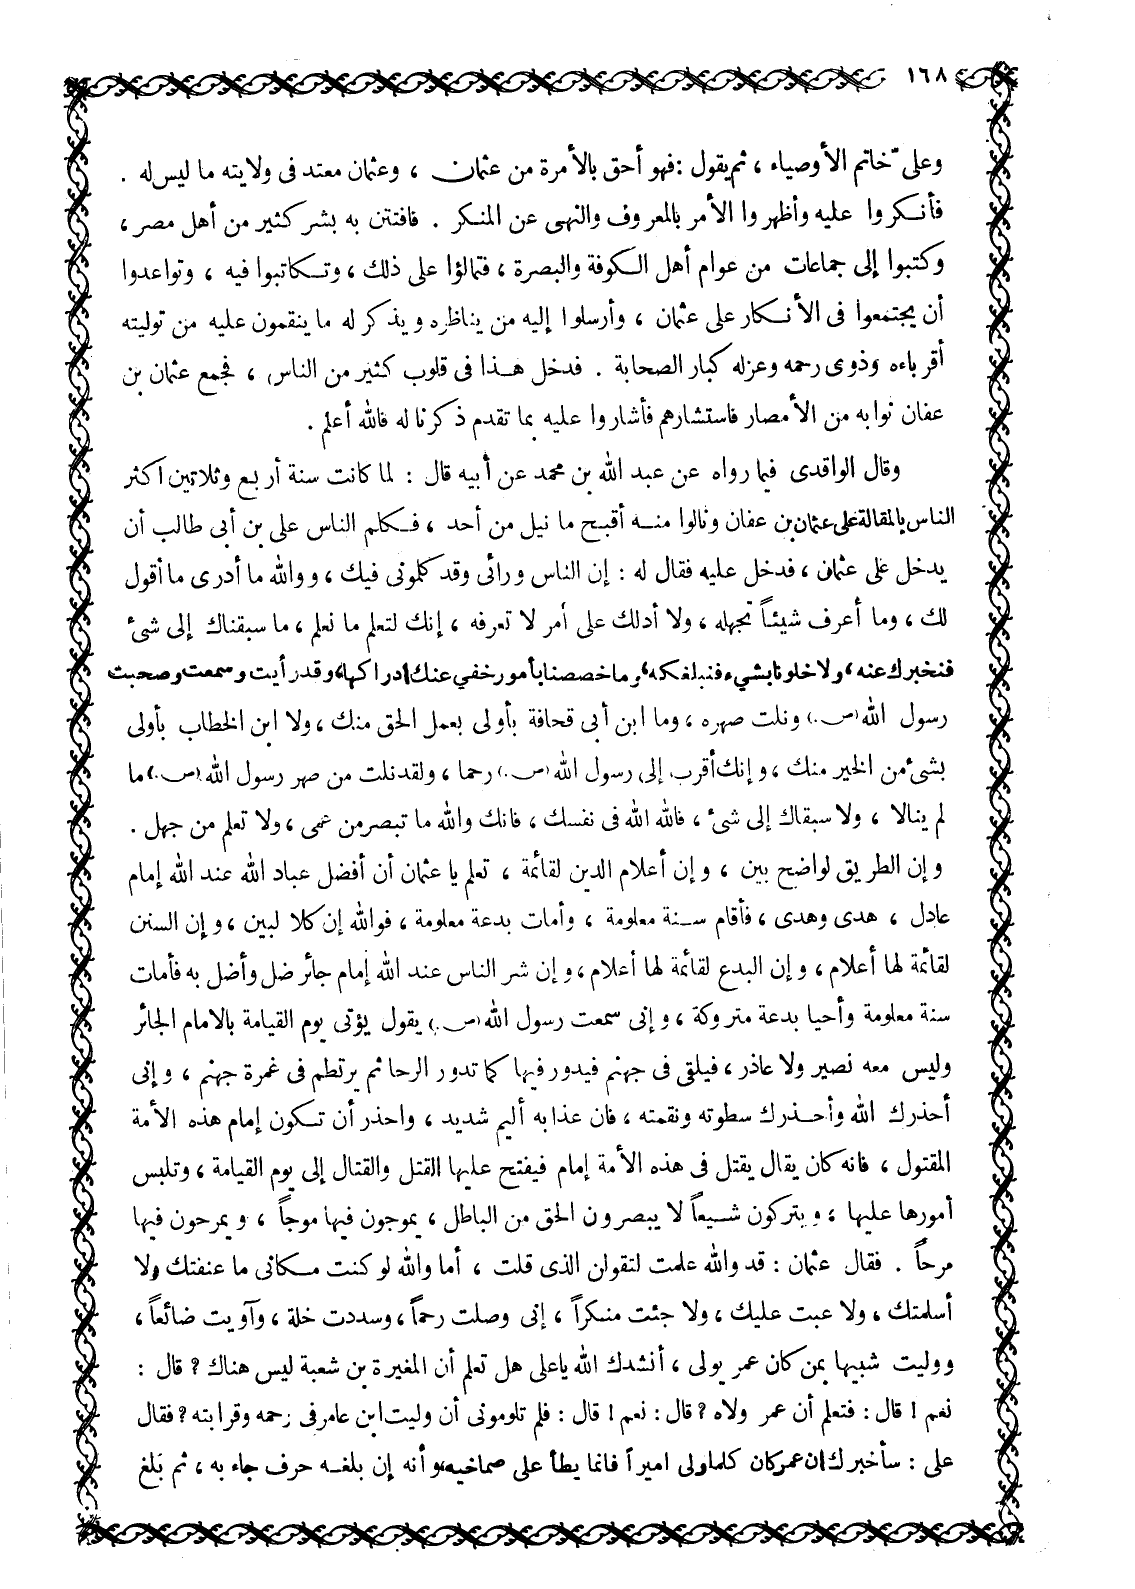 ١٦٨
وعلى خاتم الأوصياء ، ثم يقول : فهو أحق بالأمرة من عثمان ، وعثمان معتد فى ولايته ما ليس له .
فأنكروا عليه وأظهروا الأمر بالمعروف والنهى عن المنكر . فافتتن به بشر كثير من أهل مصر ،
وكتبوا إلى جماعات من عوام أهل الكوفة والبصرة ، فتمالؤا على ذلك ، وتكاتبوا فيه ، وتواعدوا
أن يجتمعوا فى الأنكار على عثمان ، وأرسلوا إليه من يناظره ويذكر له ما ينقمون عليه من توليته
أقرباءه وذوى رحمه وعزله كبار الصحابة . فدخل هذا فى قلوب كثير من الناس ، فجمع عثمان بن
عفان نوابه من الأمصار فاستشارهم فأشاروا عليه بما تقدم ذكرنا له فالله أعلم .
وقال الواقدى فيما رواه عن عبد الله بن محمد عن أبيه قال : لما كانت سنة أربع وثلاثين اكثر
الناس بالمقالة على عثمان بن عفان ونالوا منه أقبح ما نيل من أحد ، فكلم الناس على بن أبى طالب أن
يدخل على عثمان ، فدخل عليه فقال له : إن الناس ورائى وقد كلمونى فيك ، ووالله ما أدرى ما أقول
لك ، وما أعرف شيئاً تجهله ، ولا أدلك على أمر لا تعرفه ، إنك لتعلم ما نعلم ، ما سبقناك إلى شئ
فنخبرك عنه ، ولا خلونا بشيء فنبلغكه ، وما خصصنا بأمور خفي عنك إدراكها ، وقد رأيت وسمعت وصحبت
رسول الله (ص.) ونلت صهره ، وما ابن أبى قحافة بأولى بعمل الحق منك ، ولا ابن الخطاب بأولى
بشئ من الخير منك ، وإنك أقرب إلى رسول الله (ص.) رحما ، ولقد نلت من صهر رسول الله (ص.) ما
لم ينالا ، ولا سبقاك إلى شئ ، فالله الله فى نفسك ، فانك والله ما تبصر من عمى ، ولا تعلم من جهل .
وإن الطريق لواضح بين ، وإن أعلام الدين لقائمة ، تعلم يا عثمان أن أفضل عباد الله عند الله إمام
عادل ، هدى وهدى ، فأقام سنة معلومة ، وأمات بدعة معلومة ، فوالله إن كلا لبين ، وإن السنن
لقائمة لها أعلام ، وإن البدع لقائمة لها أعلام ، وإن شر الناس عند الله إمام جائر ضل وأضل به فأمات
سنة معلومة وأحيا بدعة متروكة ، وإنى سمعت رسول الله (ص.) يقول يؤتى يوم القيامة بالامام الجائر
وليس معه نصير ولا عاذر ، فيلقى فى جهنم فيدور فيها كما تدور الرحا ثم يرتطم فى غمرة جهنم ، وإنى
أحذرك الله وأحذرك سطوته ونقمته ، فان عذابه أليم شديد ، واحذر أن تكون إمام هذه الأمة
المقتول ، فانه كان يقال يقتل فى هذه الأمة إمام فيفتح عليها القتل والقتال إلى يوم القيامة ، وتلبس
أمورها عليها ، ويتركون شيعاً لا يبصرون الحق من الباطل ، يموجون فيها موجاً ، ويمرحون فيها
مرحاً . فقال عثمان : قد والله علمت لتقولن الذى قلت ، أما والله لو كنت مكانى ما عنفتك ولا
أسلمتك ، ولا عبت عليك ، ولا جئت منكراً ، إنى وصلت رحماً ، وسددت خلة ، وآويت ضائعاً ،
ووليت شبيها بمن كان عمر يولى ، أنشدك الله يا على هل تعلم أن المغيرة بن شعبة ليس هناك ? قال :
نعم ! قال : فتعلم أن عمر ولاه ? قال : نعم ! قال : فلم تلومونى أن وليت ابن عامر فى رحمه وقرابته ? فقال
على : سأخبرك ان عمر كان كلما ولى اميراً فانما يطأ على صماخيه ، وأنه إن بلغه حرف جاء به ، ثم بلغ